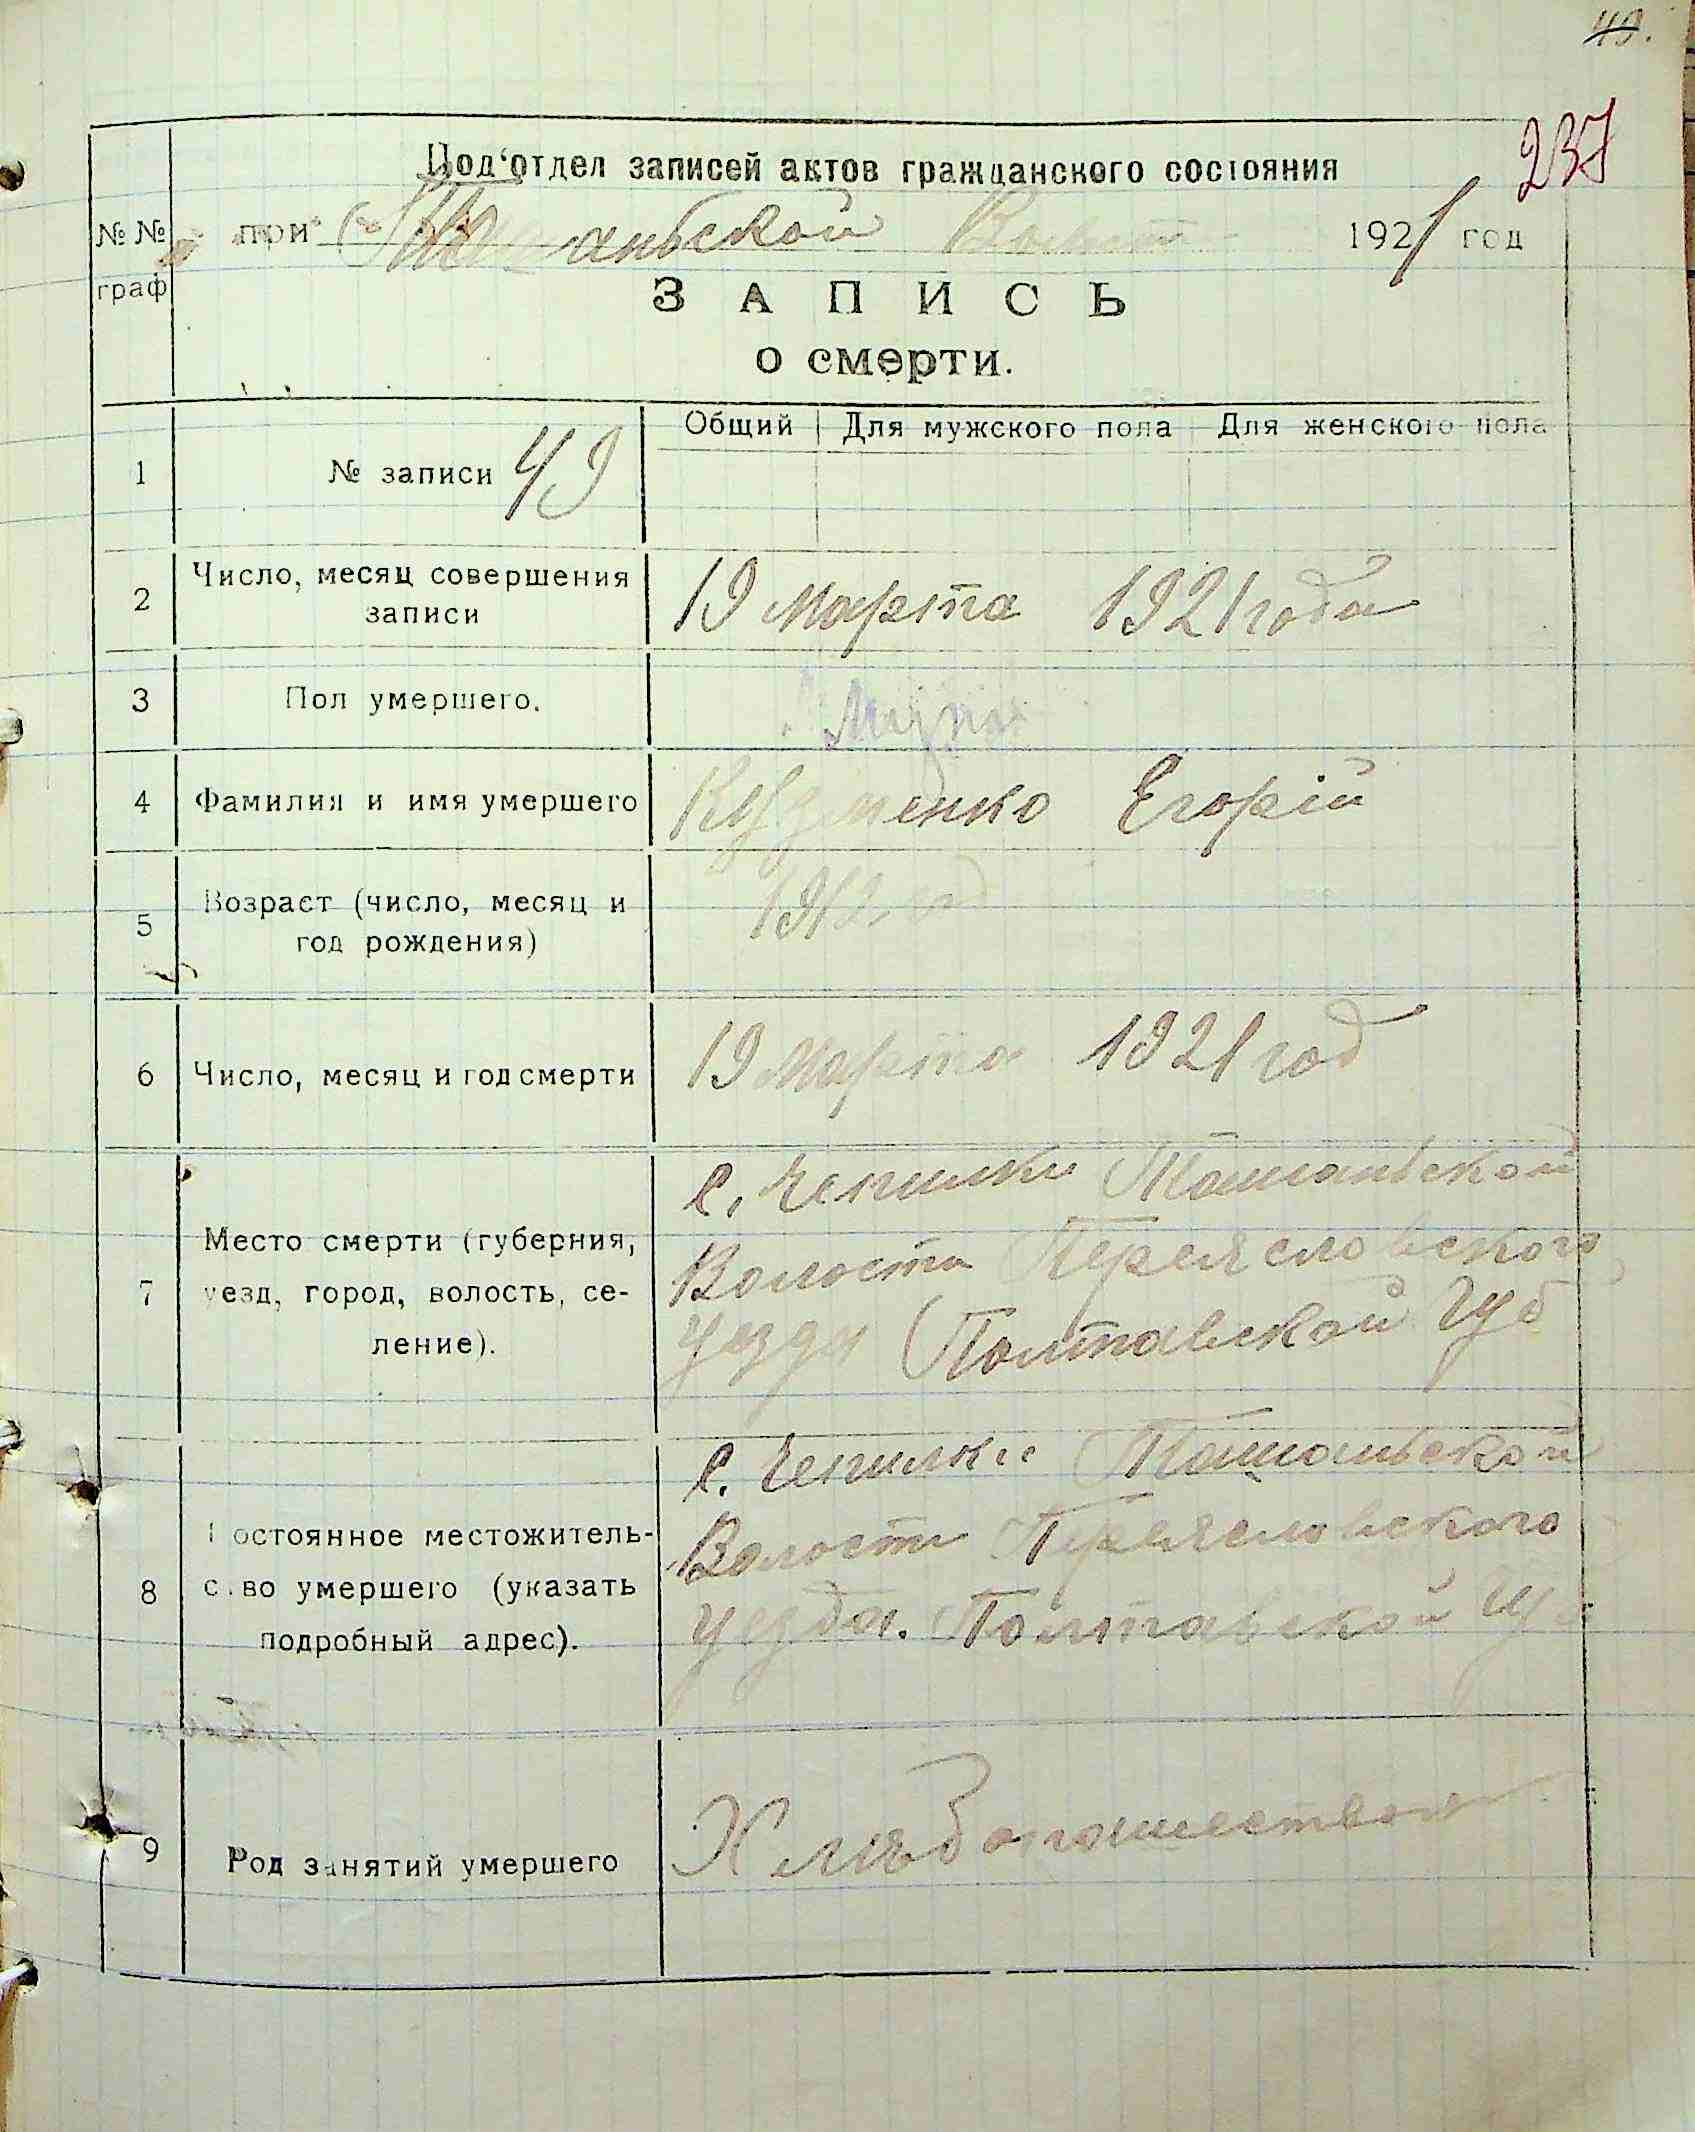 49.
237
Под'отдел записей актов гражданского состояния
№ № граф
при Ташаньской Волост 1921 год
ЗАПИСЬ
о смерти.
Общий Для мужского пола Для женского пола
1 № записи 49
2 Число, месяц совершения
записи
19 Марта 1921 года
3 Пол умершего.
4 Фамилия и имя умершего
Кузменко Егорій
5 Возраст (число, месяц и
год рождения)
1912 год
6 Число, месяц и год смерти
19 Марта 1921 год
7 Место смерти (губерния,
уезд, город, волость, се-
ление).
с. Чепилки Ташаньской
Волости Переясловского
Уезда Полтавской Губ
8 Постоянное местожитель-
ство умершего (указать
подробный адрес).
с. Чепилки Ташаньской
Волости Переясловского
Уезда. Полтавской Губ
9 Род занятий умершего
Хлѣбопашество